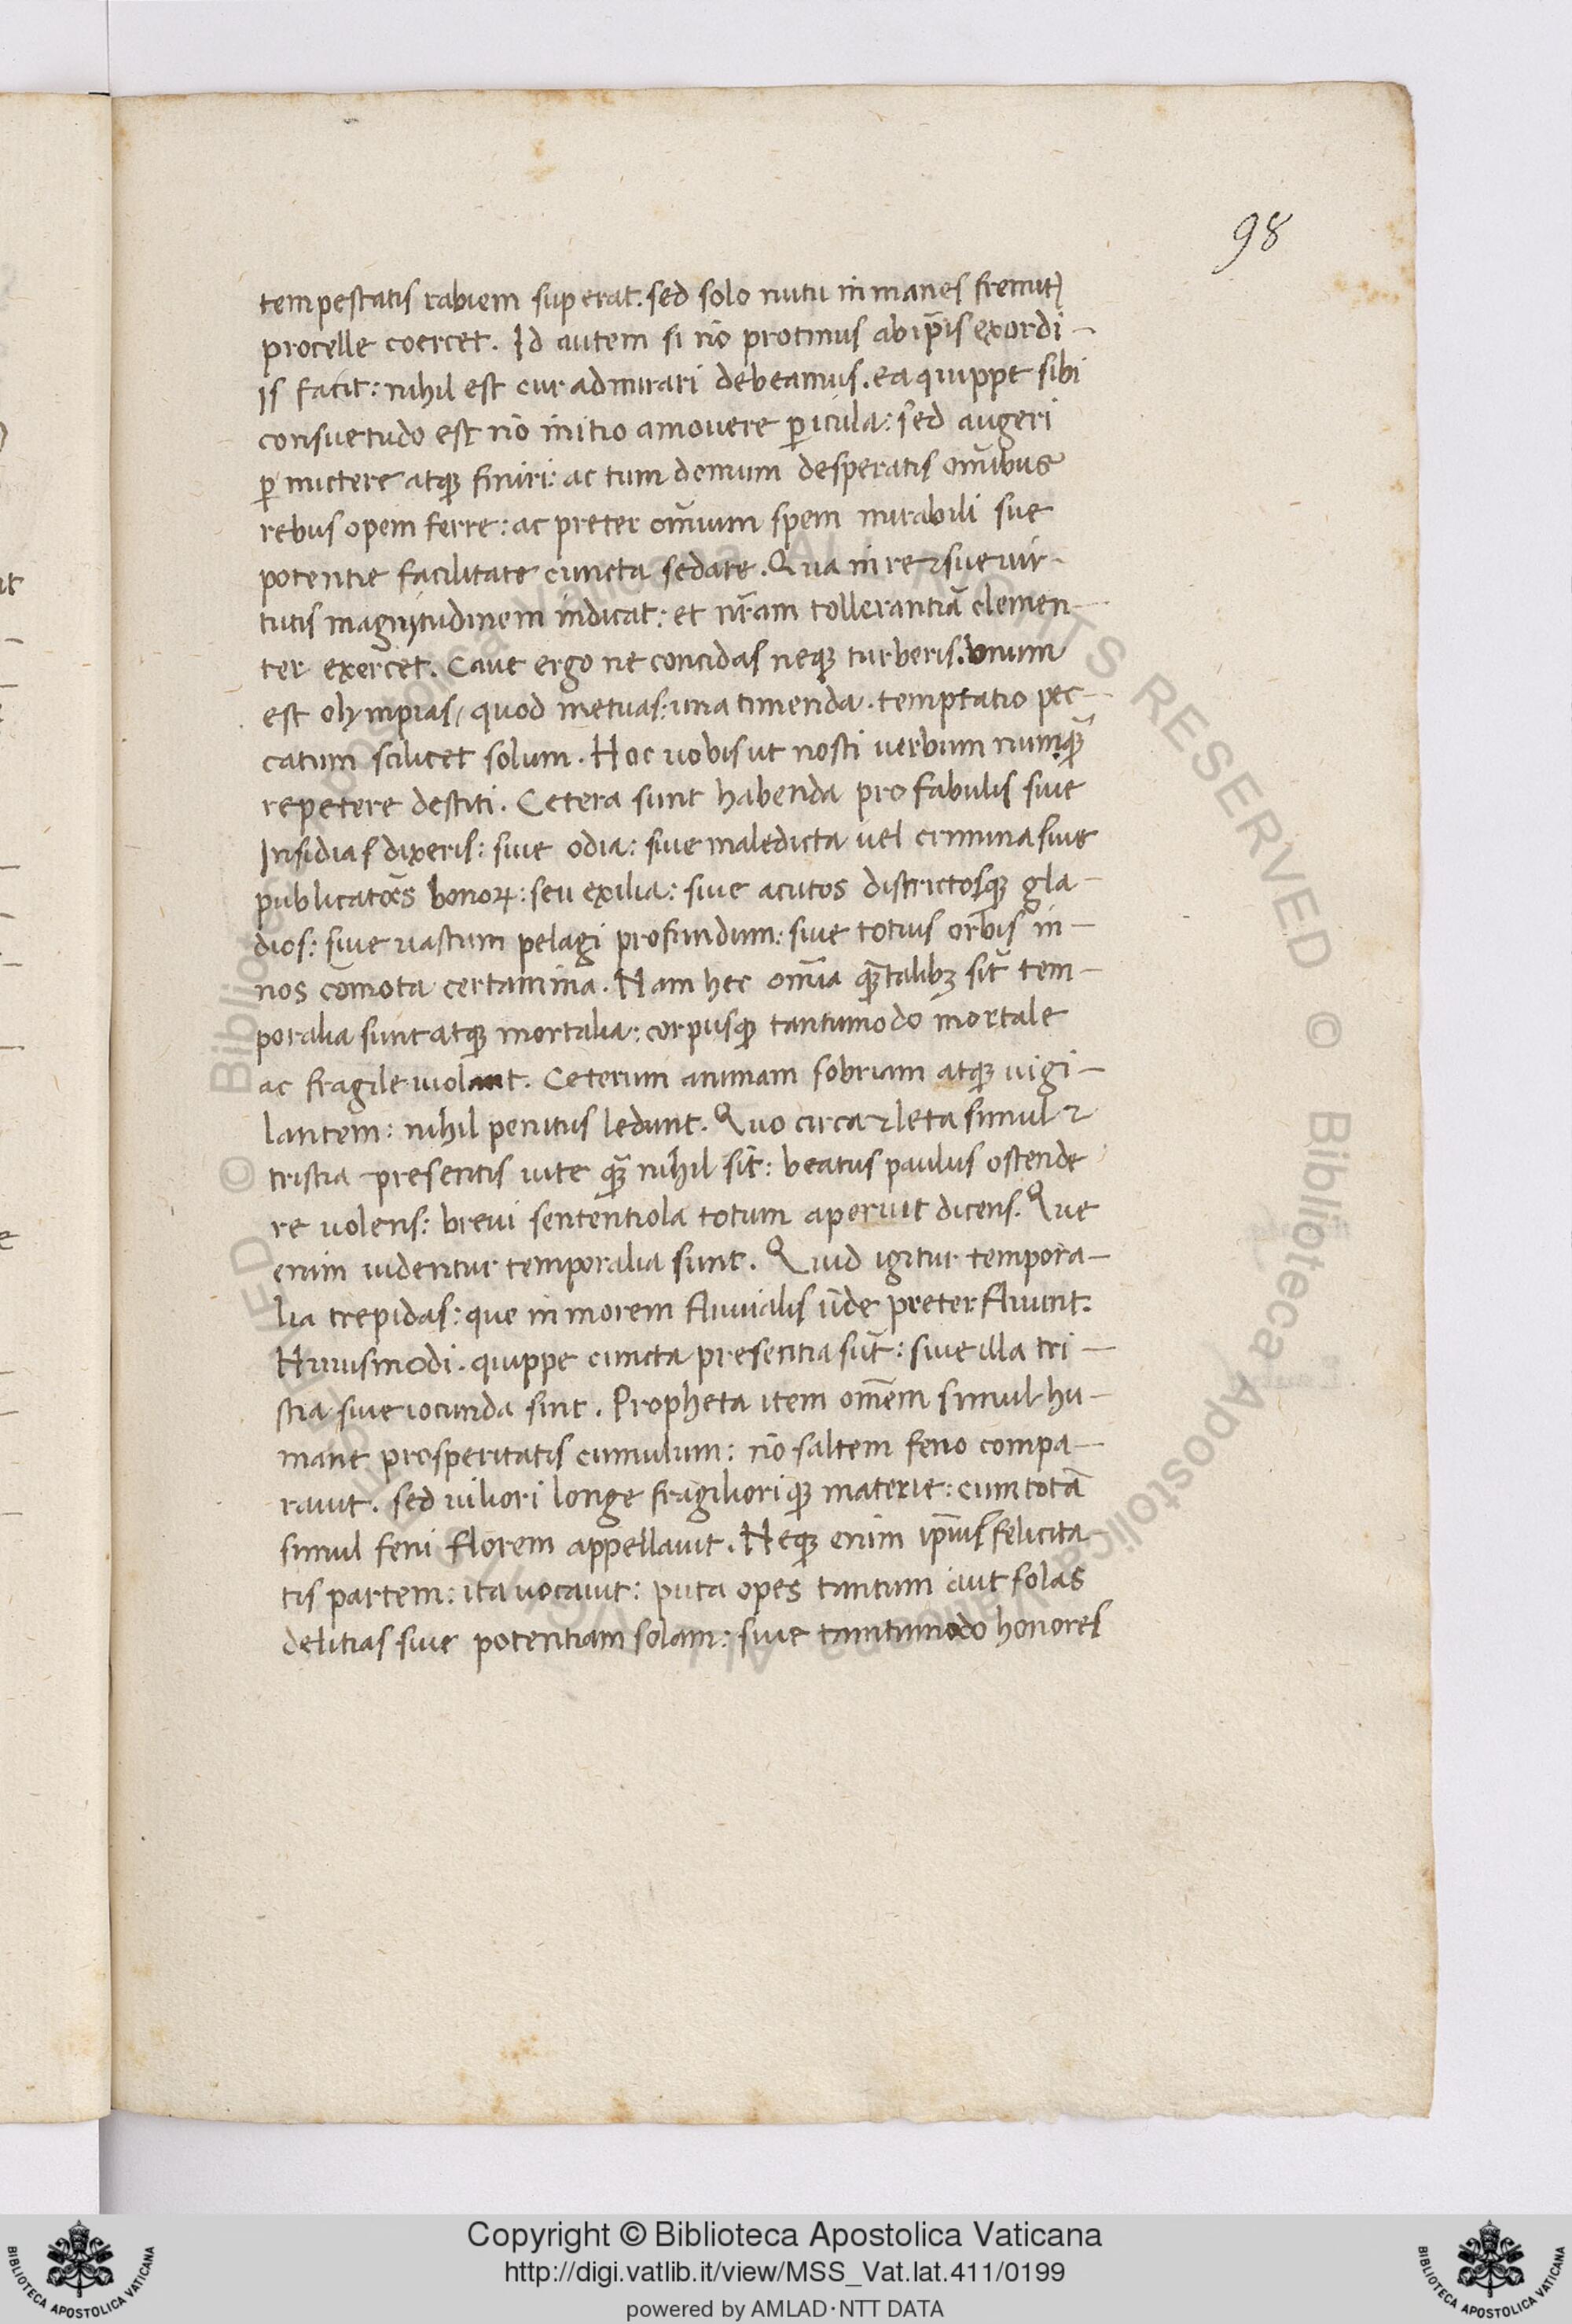 98
tempestatis rabiem superat. sed solo nutu inmanes fremitꝫ
procelle coercet. Id autem si nō protinus ab ip̄is exordi-
is facit: nihil est cur admirari debeamus. ea quippe sibi
consuetudo est nō initio amouere ꝑicula: sed augeri
ꝑ mictere atqꝫ finiri: ac tum demum desperatis om̄ibus
rebus opem ferre: ac preter om̄ium spem mirabili sue
potentie facilitate cuncta sedate. Qua in re ⁊ sue uir-
tutis magnitudinem indicat: et nr̄am tollerantiā clemen-
ter exercet. Caue ergo ne concidas neqꝫ turberis. unum
est olympias, quod metuas: una timenda. temptatio pec-
catum scilicet solum. Hoc uobis ut nosti uerbum numqꝫ̄
repetere destiti. Cetera sunt habenda pro fabulis siue
Insidias dixeris: siue odia: siue maledicta uel crimina siue
publicatōēs bonoꝝ: seu exilia: siue acutos districtosqꝫ gla-
dios: siue uastum pelagi profundum: siue totius orbis in-
nos cōmota certamina. Nam hec om̄ia qꝫ̄talibꝫ sīt tem-
poralia sunt atqꝫ mortalia: corpusqꝫ tantumodo mortale
ac fragile uiolant. Ceterum animam sobriam atqꝫ uigi-
lantem: nihil penitus ledunt. Quo circa ⁊ leta simul ⁊
tristia presentis uite qꝫ̄ nihil sīt: beatus paulus ostende
re uolens: breui sententiola totum aperuit dicens. Que
enim uidentur temporalia sunt. Quid igitur tempora-
lia trepidas: que in morem fluuialis ūde preter fluunt.
Huiusmodi. quippe cuncta presentia sūt: siue illa tri-
stia siue iocunda sint. Propheta item om̄em simul hu-
mane prosperitatis cumulum: nō saltem feno compa-
rauit. sed uiliori longe fragilioriqꝫ materie: cum totā
simul feni florem appellauit. Neqꝫ enim ip̄ius felicita-
tis partem: ita uocauit: puta opes tantum aut solas
delitias siue potentiam solam: siue tantumodo honores
Copyright © Biblioteca Apostolica Vaticana
http://digi.vatlib.it/view/MSS_Vat.lat.411/0199
powered by AMLAD·NTT DATA